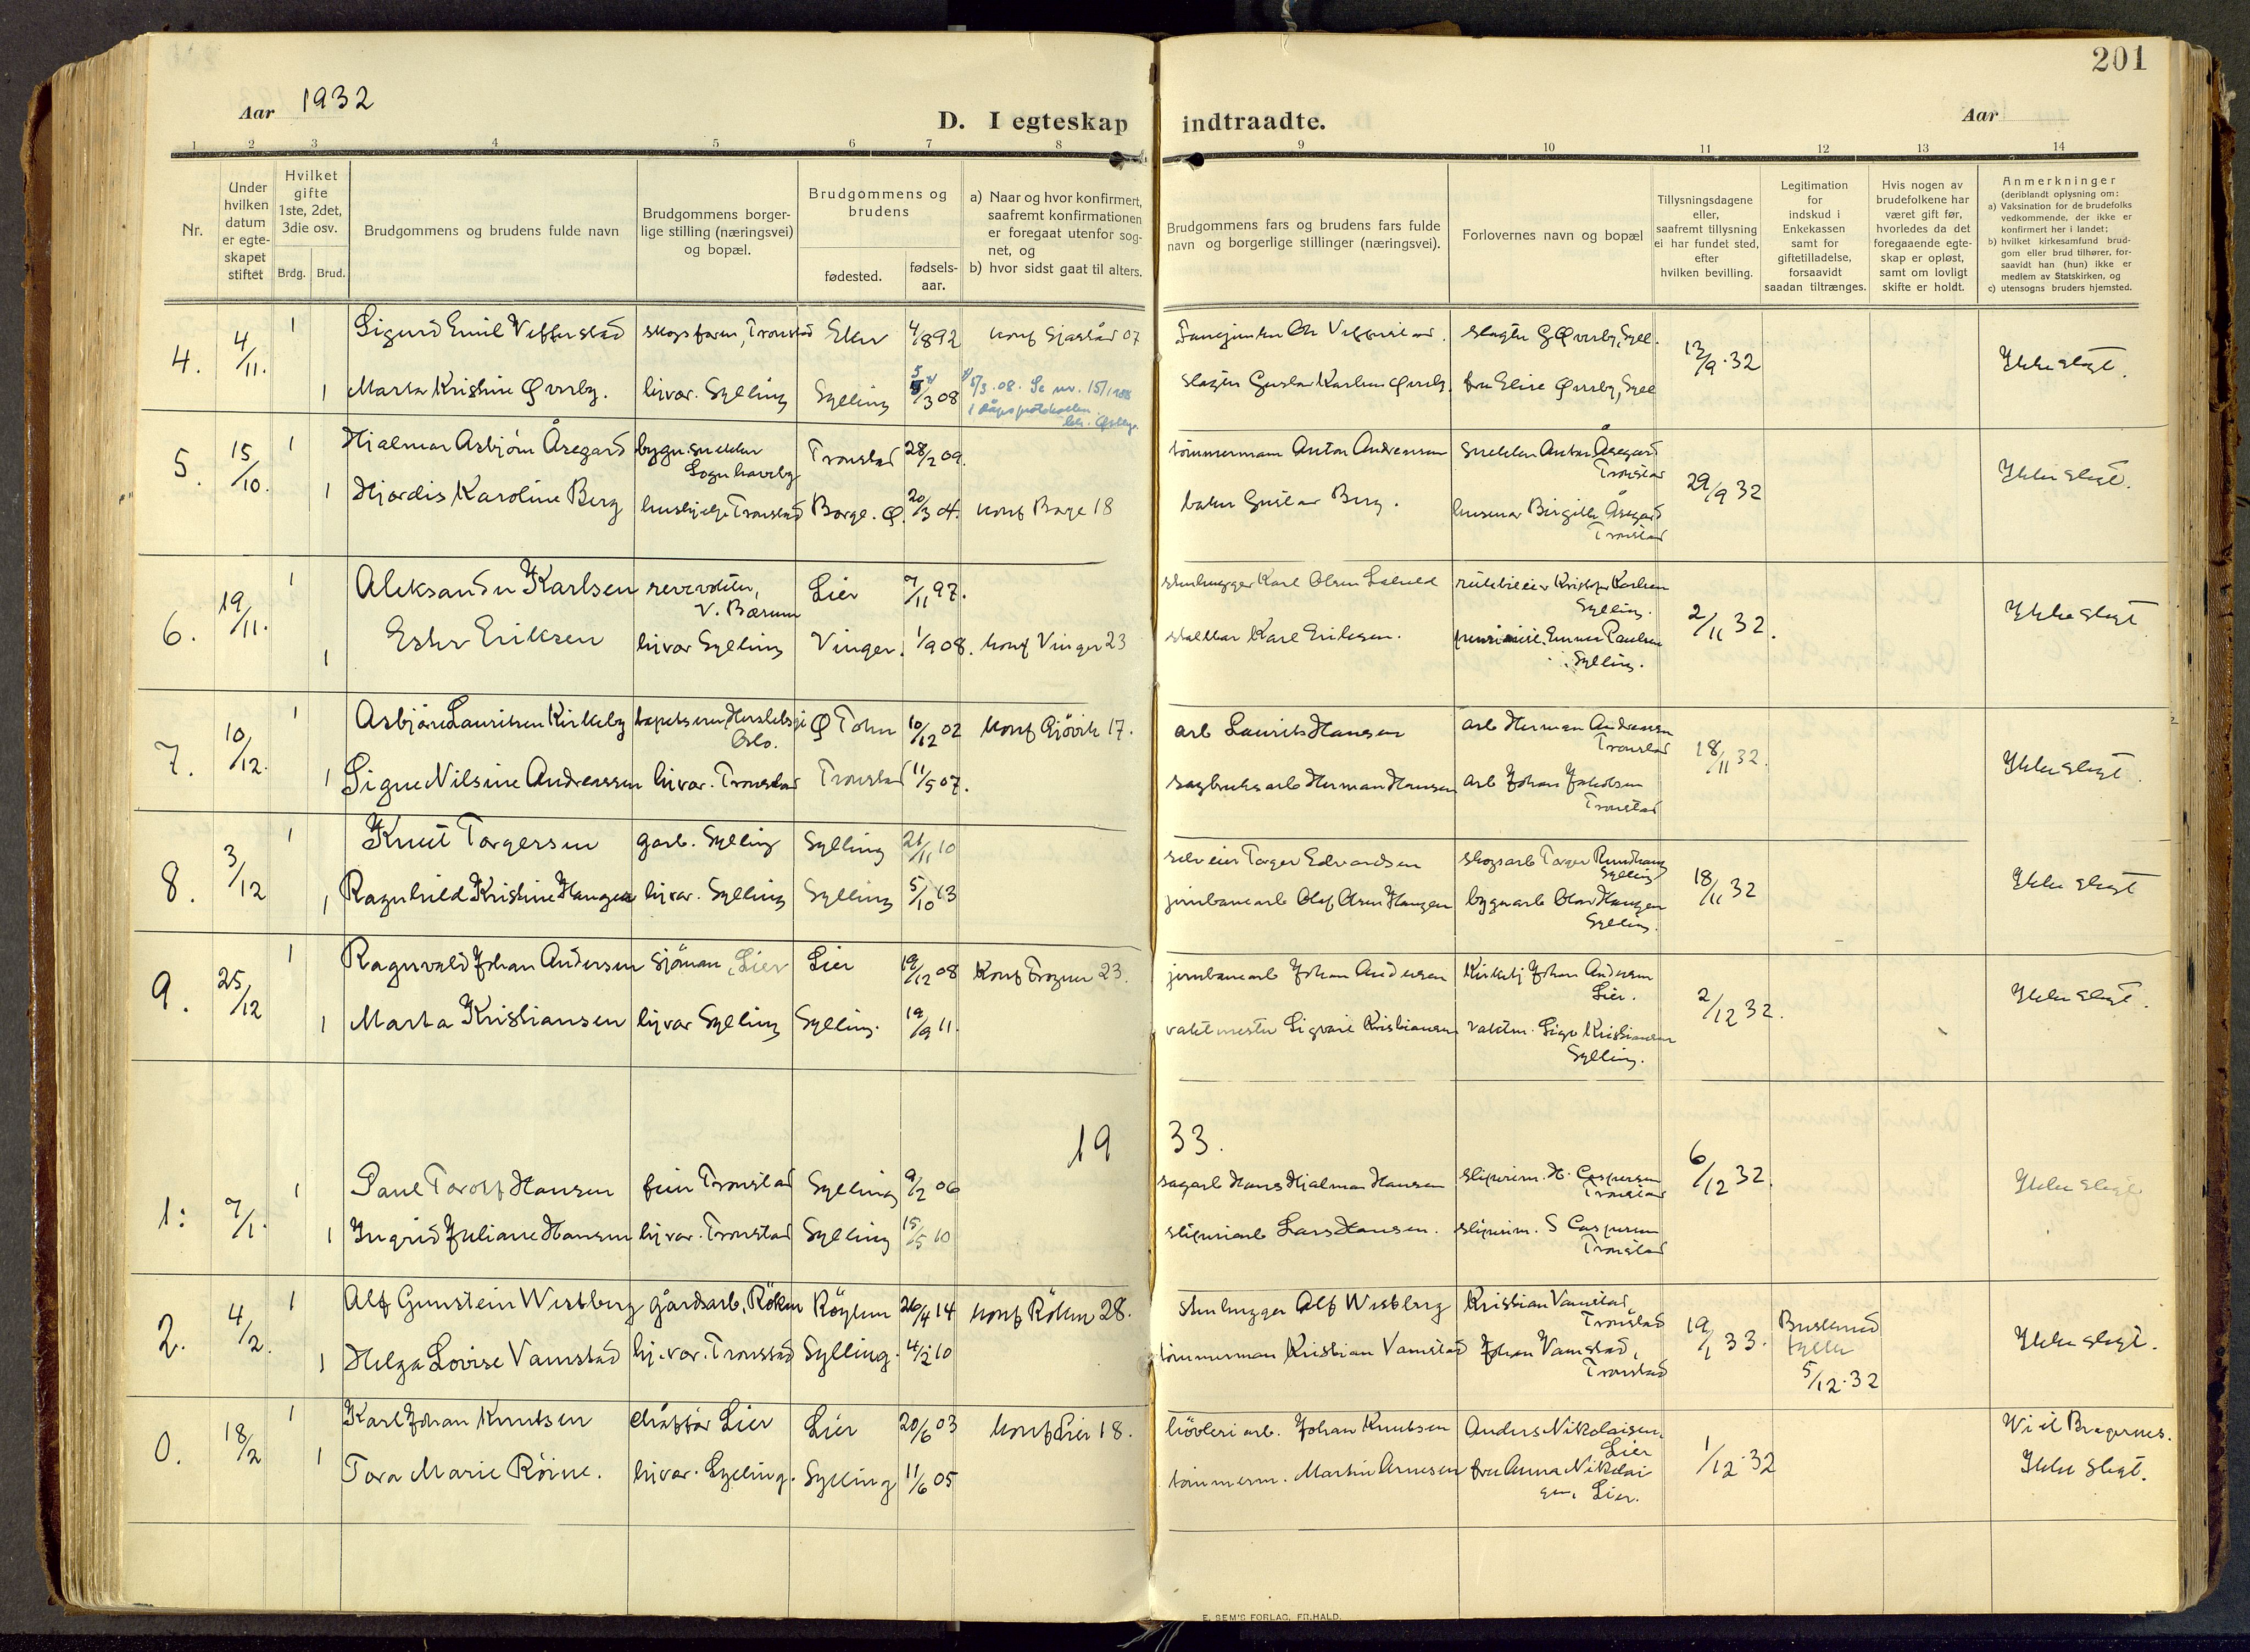 201
Aar 1932
D. I egteskap indtraadte.
Aar
1 2 3 4 5 6 7 8 9 10 11 12 13 14
Nr.
Under hvilken datum er egte-skapet stiftet
Hvilket gifte 1ste, 2det, 3die osv.
Brdg. Brud.
Brudgommens og brudens fulde navn
Brudgommens borger-lige stilling (næringsvei) og bopæl.
Brudgommens og brudens
fødested.
fødsels-aar.
a) Naar og hvor konfirmert, saafremt konfirmationen er foregaat utenfor sog-net, og
b) hvor sidst gaat til alters.
Brudgommens fars og brudens fars fulde navn og borgerlige stillinger (næringsvei).
Forlovernes navn og bopæl
Tillysningsdagene eller, saafremt tillysning ei har fundet sted, efter hvilken bevilling.
Legitimation for indskud i Enkekassen samt for giftetilladelse, forsaavidt saadan tiltrænges.
Hvis nogen av brudefolkene har været gift før, hvorledes da det foregaaende egte-skap er opløst, samt om lovligt skifte er holdt.
Anmerkninger (deriblandt oplysning om:
a) Vaksination for de brudefolks vedkommende, der ikke er konfirmert her i landet;
b) hvilket kirkesamfund brud-gom eller brud tilhører, for-saavidt han (hun) ikke er medlem av Statskirken, og
c) utensogns bruders hjemsted.
4. 4/11. 1 Sigurd Emil Vefferstad Tronstad Eker 4/8 92 konf Sjåstad 07 slagter G Øverby, Syll. 12/9.32 Ikke slegt.
1 Marta Kristine Øverby. hjvær. Sylling Sylling 5/3 08 5/3.08. Se nr. 15/1908 slagter Gustav Karlsen Øverby. fru Elise Øverby, Syll
5. 15/10. 1 Hjalmar Asbjörn Åsegard bygn.snekker Tronstad 28/2 09. tömmermann Anton Andreassen snekker Anton Åsegard Tronstad 29/9 32 Ikke slegt.
1 Hjördis Karoline Berg hushjelp Tronstad Borge. Ø. 20/3 04. konf Borge 18 baker Gustav Berg. Birgitte Åsegard Tronstad
6. 19/11. 1 Aleksander Karlsen V. Bærum Lier 7/11 97. stenhugger Karl Olsen Kristofer Karlsen Sylling. 2/11 32. Ikke slegt
1 Ester Eriksen hjvær Sylling Vinger. 1/9 08. konf Vinger 23 Karl Eriksen. Emma Paulsen Sylling.
7. 10/12. 1 Asbjörn Lauritsen Kirkeby tapetserer Oslo. Ø Toten 10/12 02 konf Gjövik 17. arb Laurits Hansen arb Herman Andreassen Tronstad 18/11 32. Ikke slegt.
1 Signe Nilsine Andreassen hjvær. Tronstad Tronstad 11/5 07. sagbruksarb Herman Hansen arb Johan Jakobsen Tronstad
8. 3/12 1 Knut Torgersen garb. Sylling Sylling 21/11 10 selveier Torger Edvardsen skogsarb Torger Sylling 18/11 32 Ikke slegt
1 Ragnhild Kristine Haugen hjvær. Sylling Sylling 5/10 13 jernbanearb Olaf Olsen Haugen bygnarb Olav Haugen Sylling.
9. 25/12 1 Ragnvald Johan Andersen sjöman, Lier Lier 19/12 08 konf Frogner 23. jernbanearb Johan Andersen Kirketj Johan Andersen Lier. 2/12 32. Ikke slegt.
1 Marta Kristiansen hjvær Sylling Sylling. 19/9 11. vaktmester Sigvart Kristiansen vaktm. Sigv Kristiansen Sylling.
1933.
1. 7/1. 1 Paul Torolf Hansen Tronstad Sylling 9/2 06 sagarb Hans Hjalmar Hansen sliperim. H. Caspersen Tronstad 6/12 32. Ikke slegt
1 Ingrid Juliane Hansen hjvær. Tronstad Sylling 15/5 10 sliperiarb Lars Hansen. sliperim. S Caspersen Tronstad
2. 4/2. 1 Alf Gunstein Westberg gårdsarb, Röken Röyken 26/4 14 konf Röken 28. stenhugger Alf Westberg Kristian Vamstad, Tronstad 19/1 33. Buskerud fylke 5/12.32 Ikke slegt.
1 Helga Lovise Vamstad hj.vær. Tronstad Sylling. 4/2 10 tömmerman Kristian Vamstad Johan Vamstad, Tronstad
0. 18/2 1 Karl Johan Knutsen chåfför Lier Lier 20/6 03 konf Lier 18. hövleriarb. Johan Knutsen Anders Nikolaisen, Lier 1/12.32 Vi il Bragernes. Ikke slegt.
1 Tora Marie Röine. hjvær. Sylling. Sylling 11/6 05 tömmerm. Martin Arnesen fru Anna Nikolaisen, Lier.
E. SEM'S FORLAG, FR.HALD.